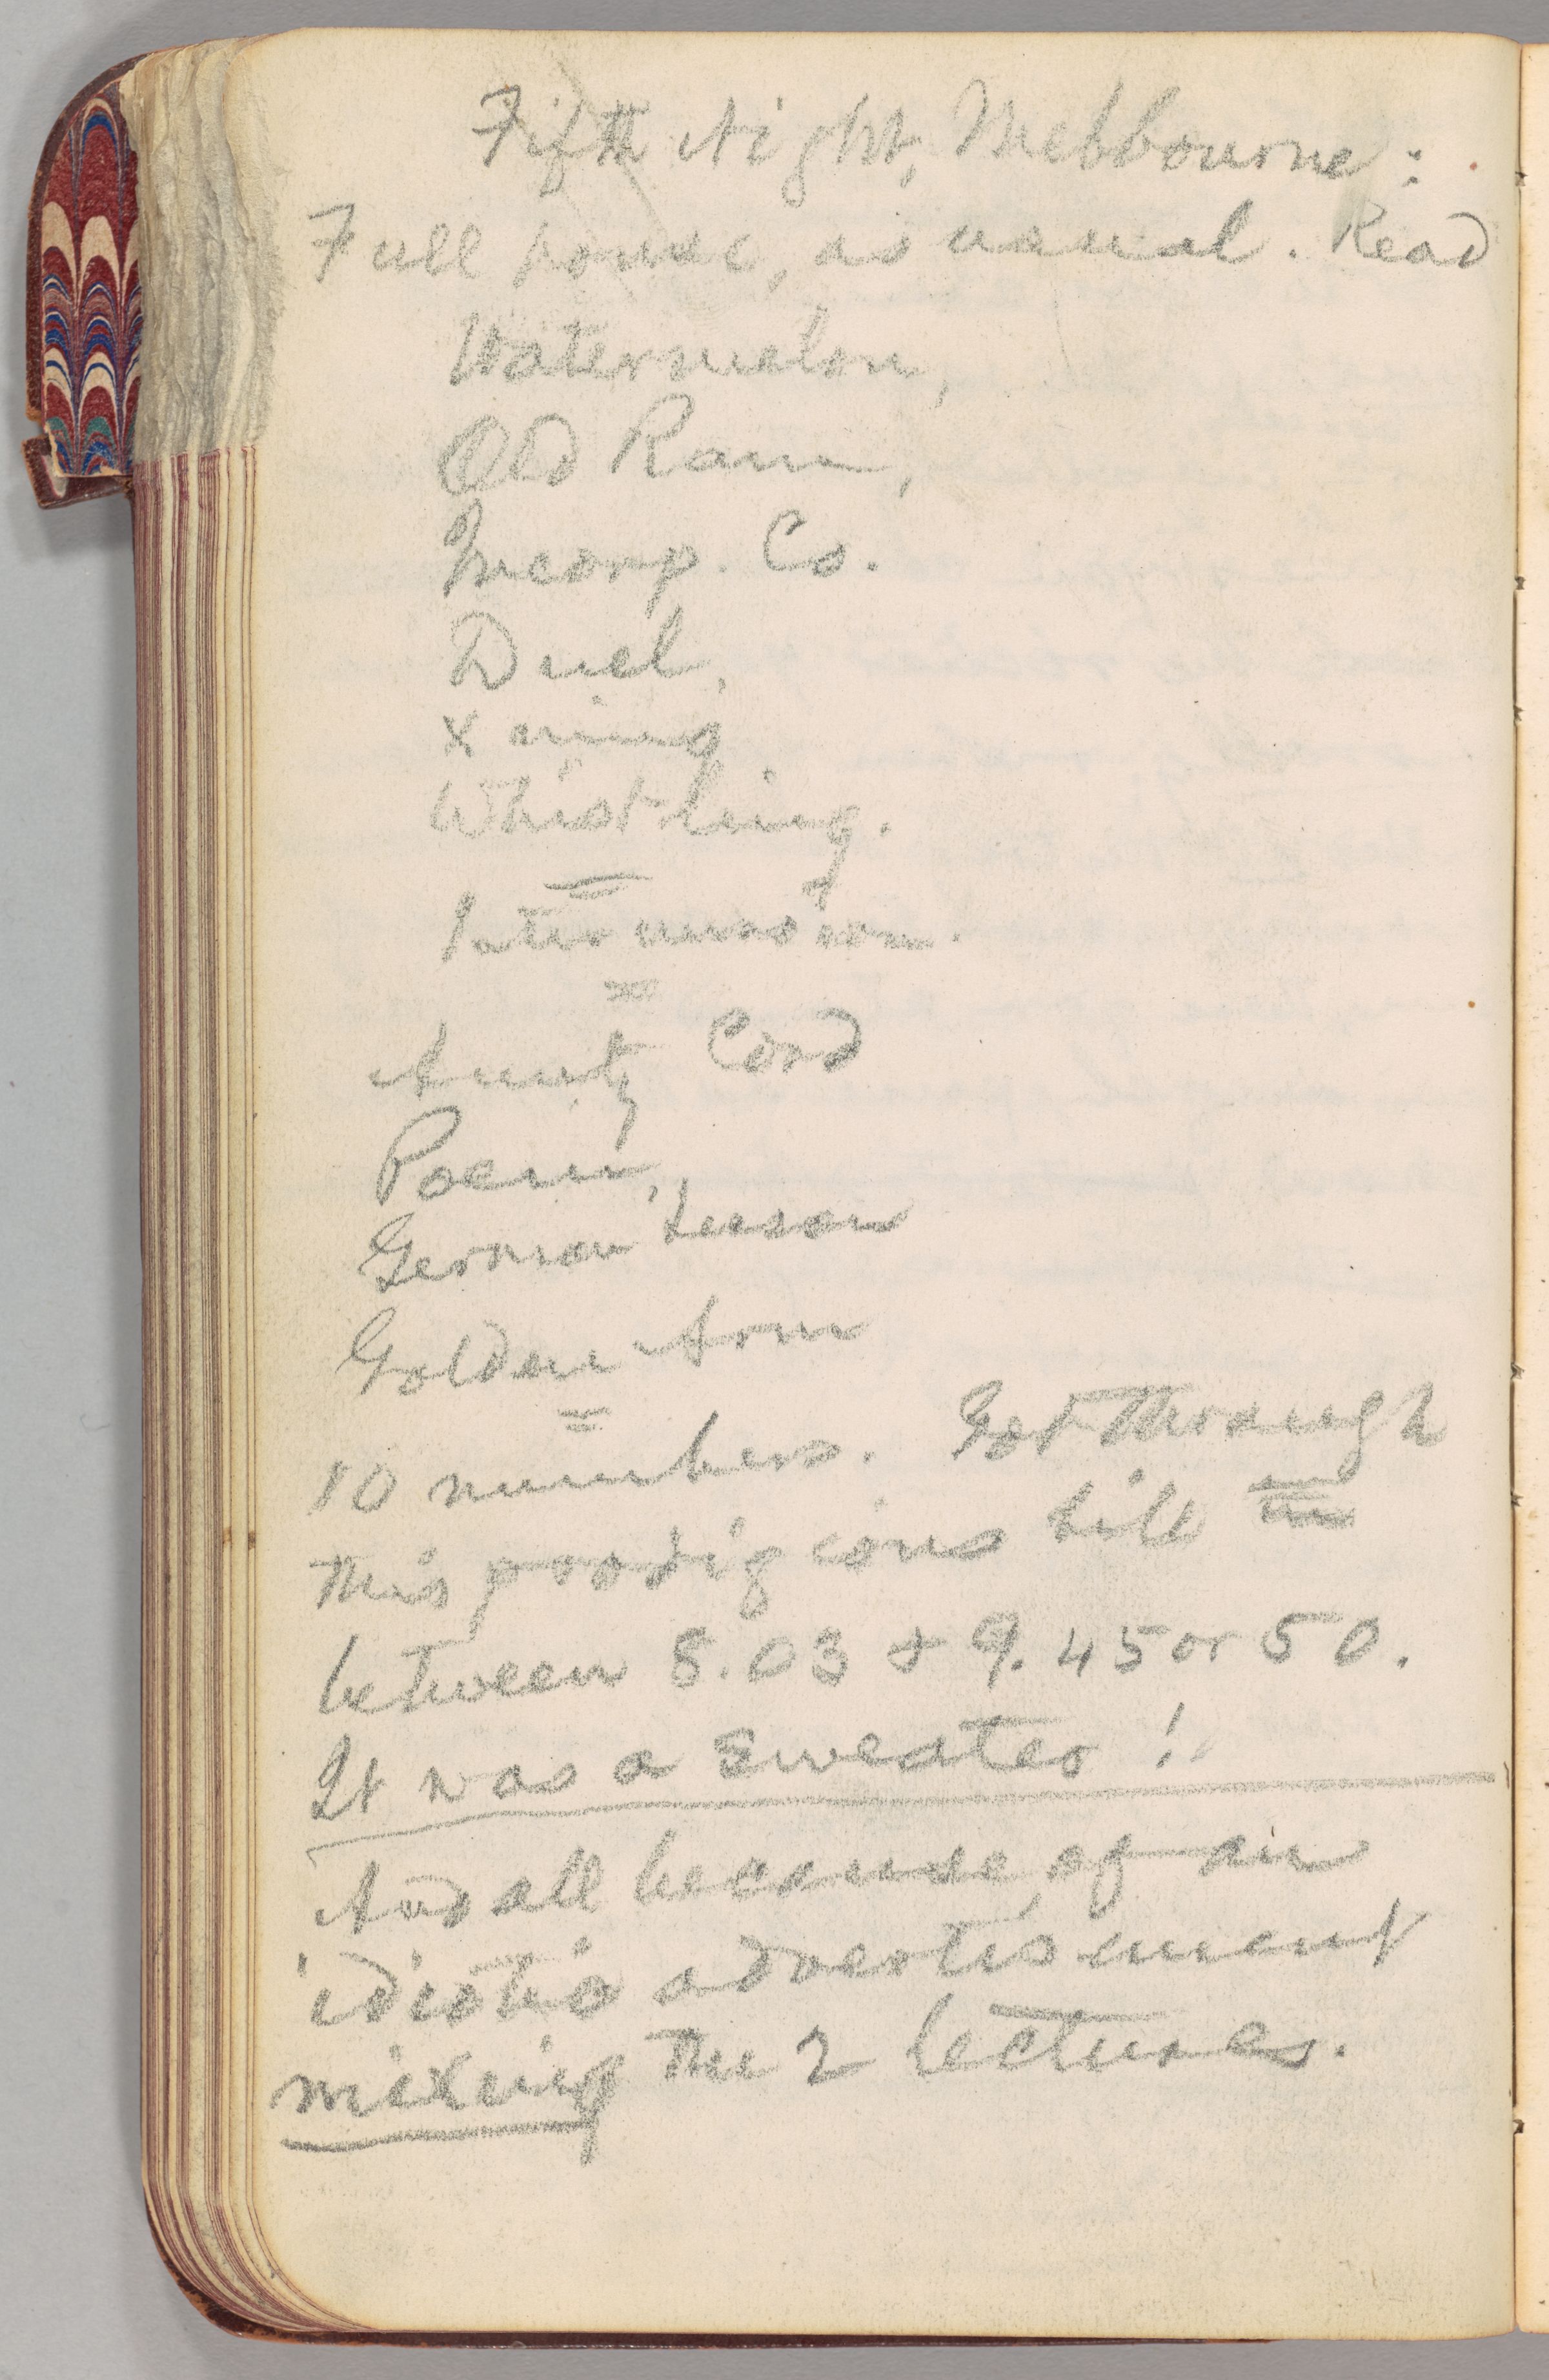 Fifth Night, Melbourne:
Full house, as usual. Read
Watermelon,
Old Ram,
Incorp. Co.
Duel,
Xning
Whistling.
Intermission.
Aunty Cord
Poem,
German Lesson
Golden Arm
10 numbers. Got through
this prodigious bill
between 8.03 & 9.45 or 50.
It was a sweater!
And all because of an
idiotic advertisment
mixing the 2 lectures.